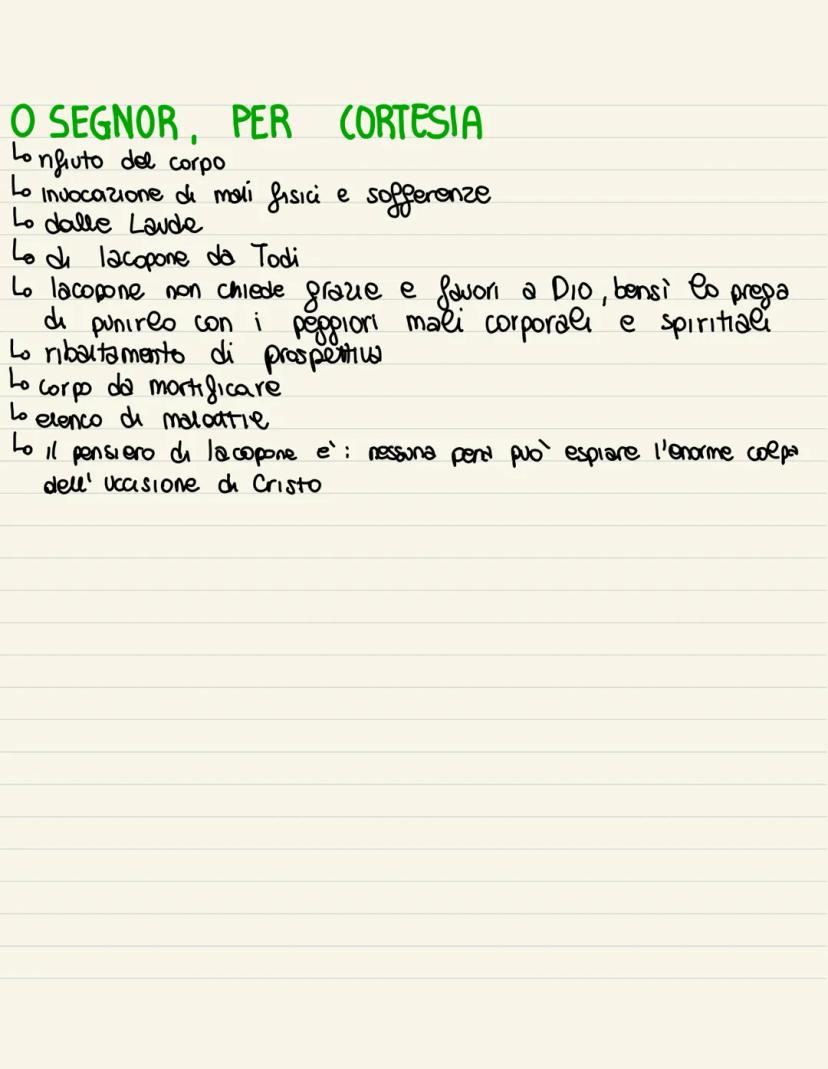 O SEGNOR, PER CORTESIA
↳ rifiuto del corpo
↳ invocazione di mali fisici e sofferenze
↳ dalle Laude
↳ di Iacopone da Todi
↳ Iacopone non chiede grazie e favori a Dio, bensì lo prega
di punirlo con i peggiori mali corporali e spiritiali
↳ ribaltamento di prospettiva
↳ corpo da mortificare
↳ elenco di malattie
↳ il pensiero di Iacopone è: nessuna pena può espiare l'enorme colpa
dell'uccisione di Cristo